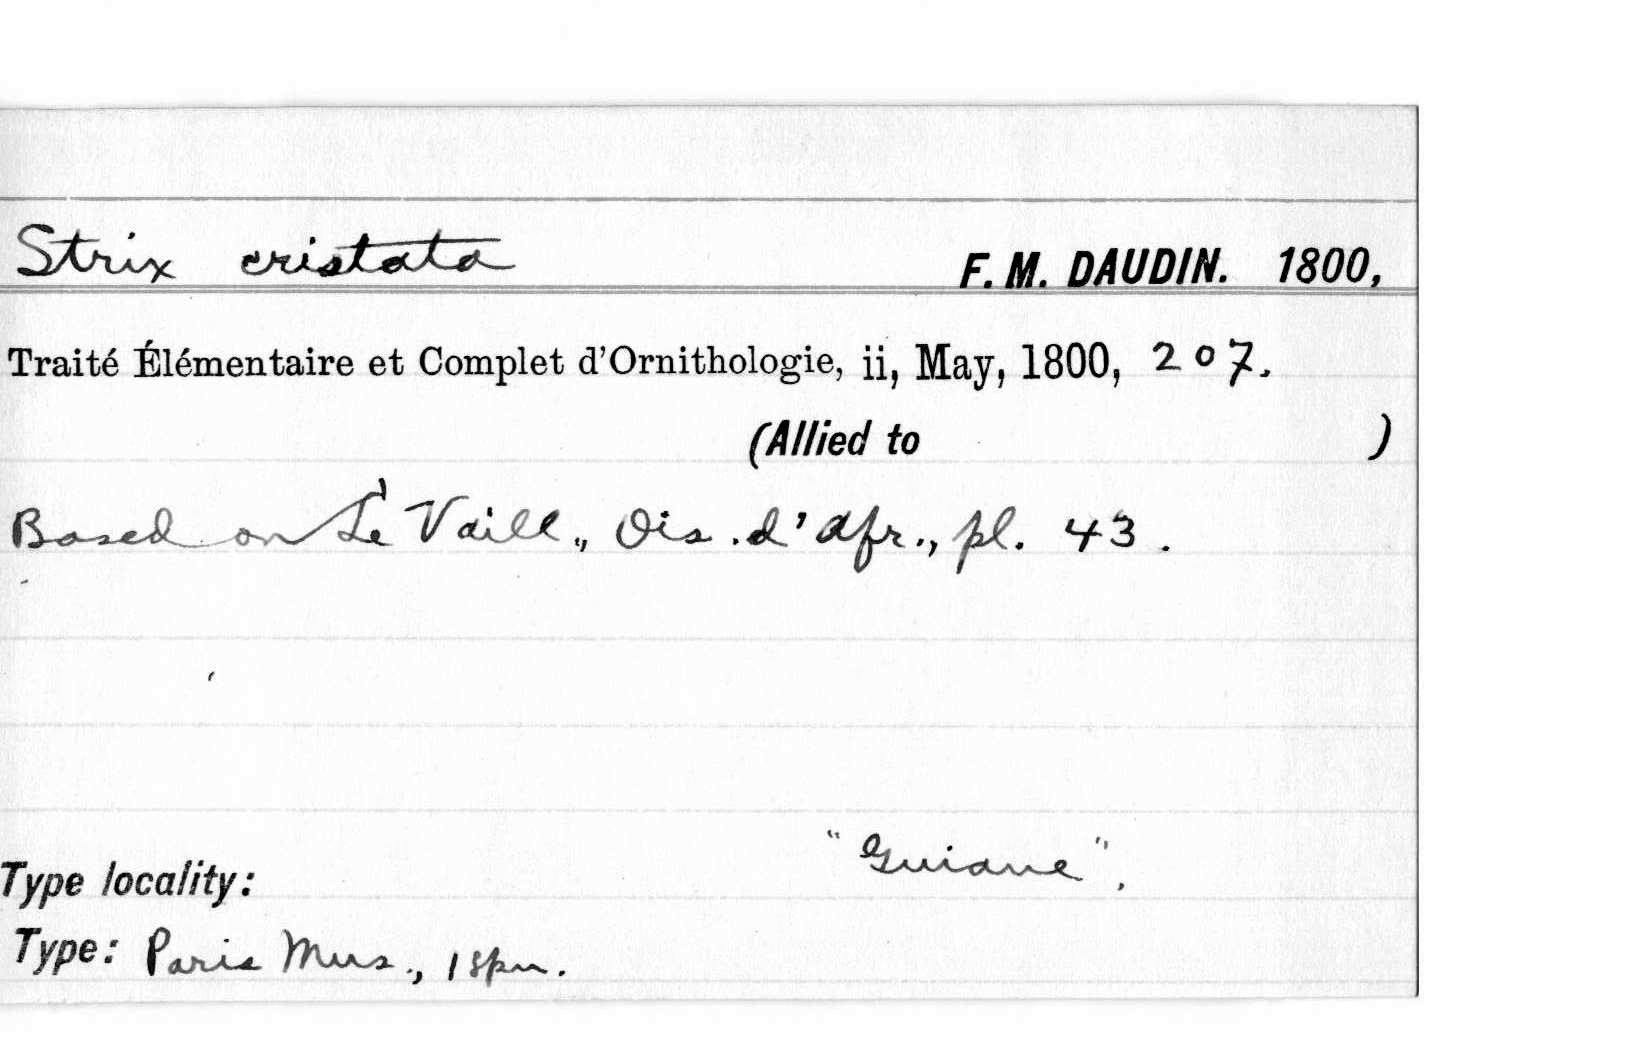 Strix cristata F. M. DAUDIN. 1800,
Traité Élémentaire et Complet d'Ornithologie, ii, May, 1800, 207.
(Allied to )
Based on Le Vaill., Ois. d'Afr., pl. 43.
"Guiane",
Type locality:
Type: Paris Mus., 1 spn.